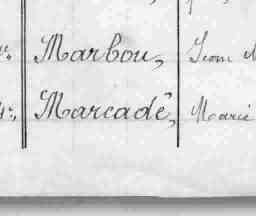 Marbou,
Marcadé, Marie